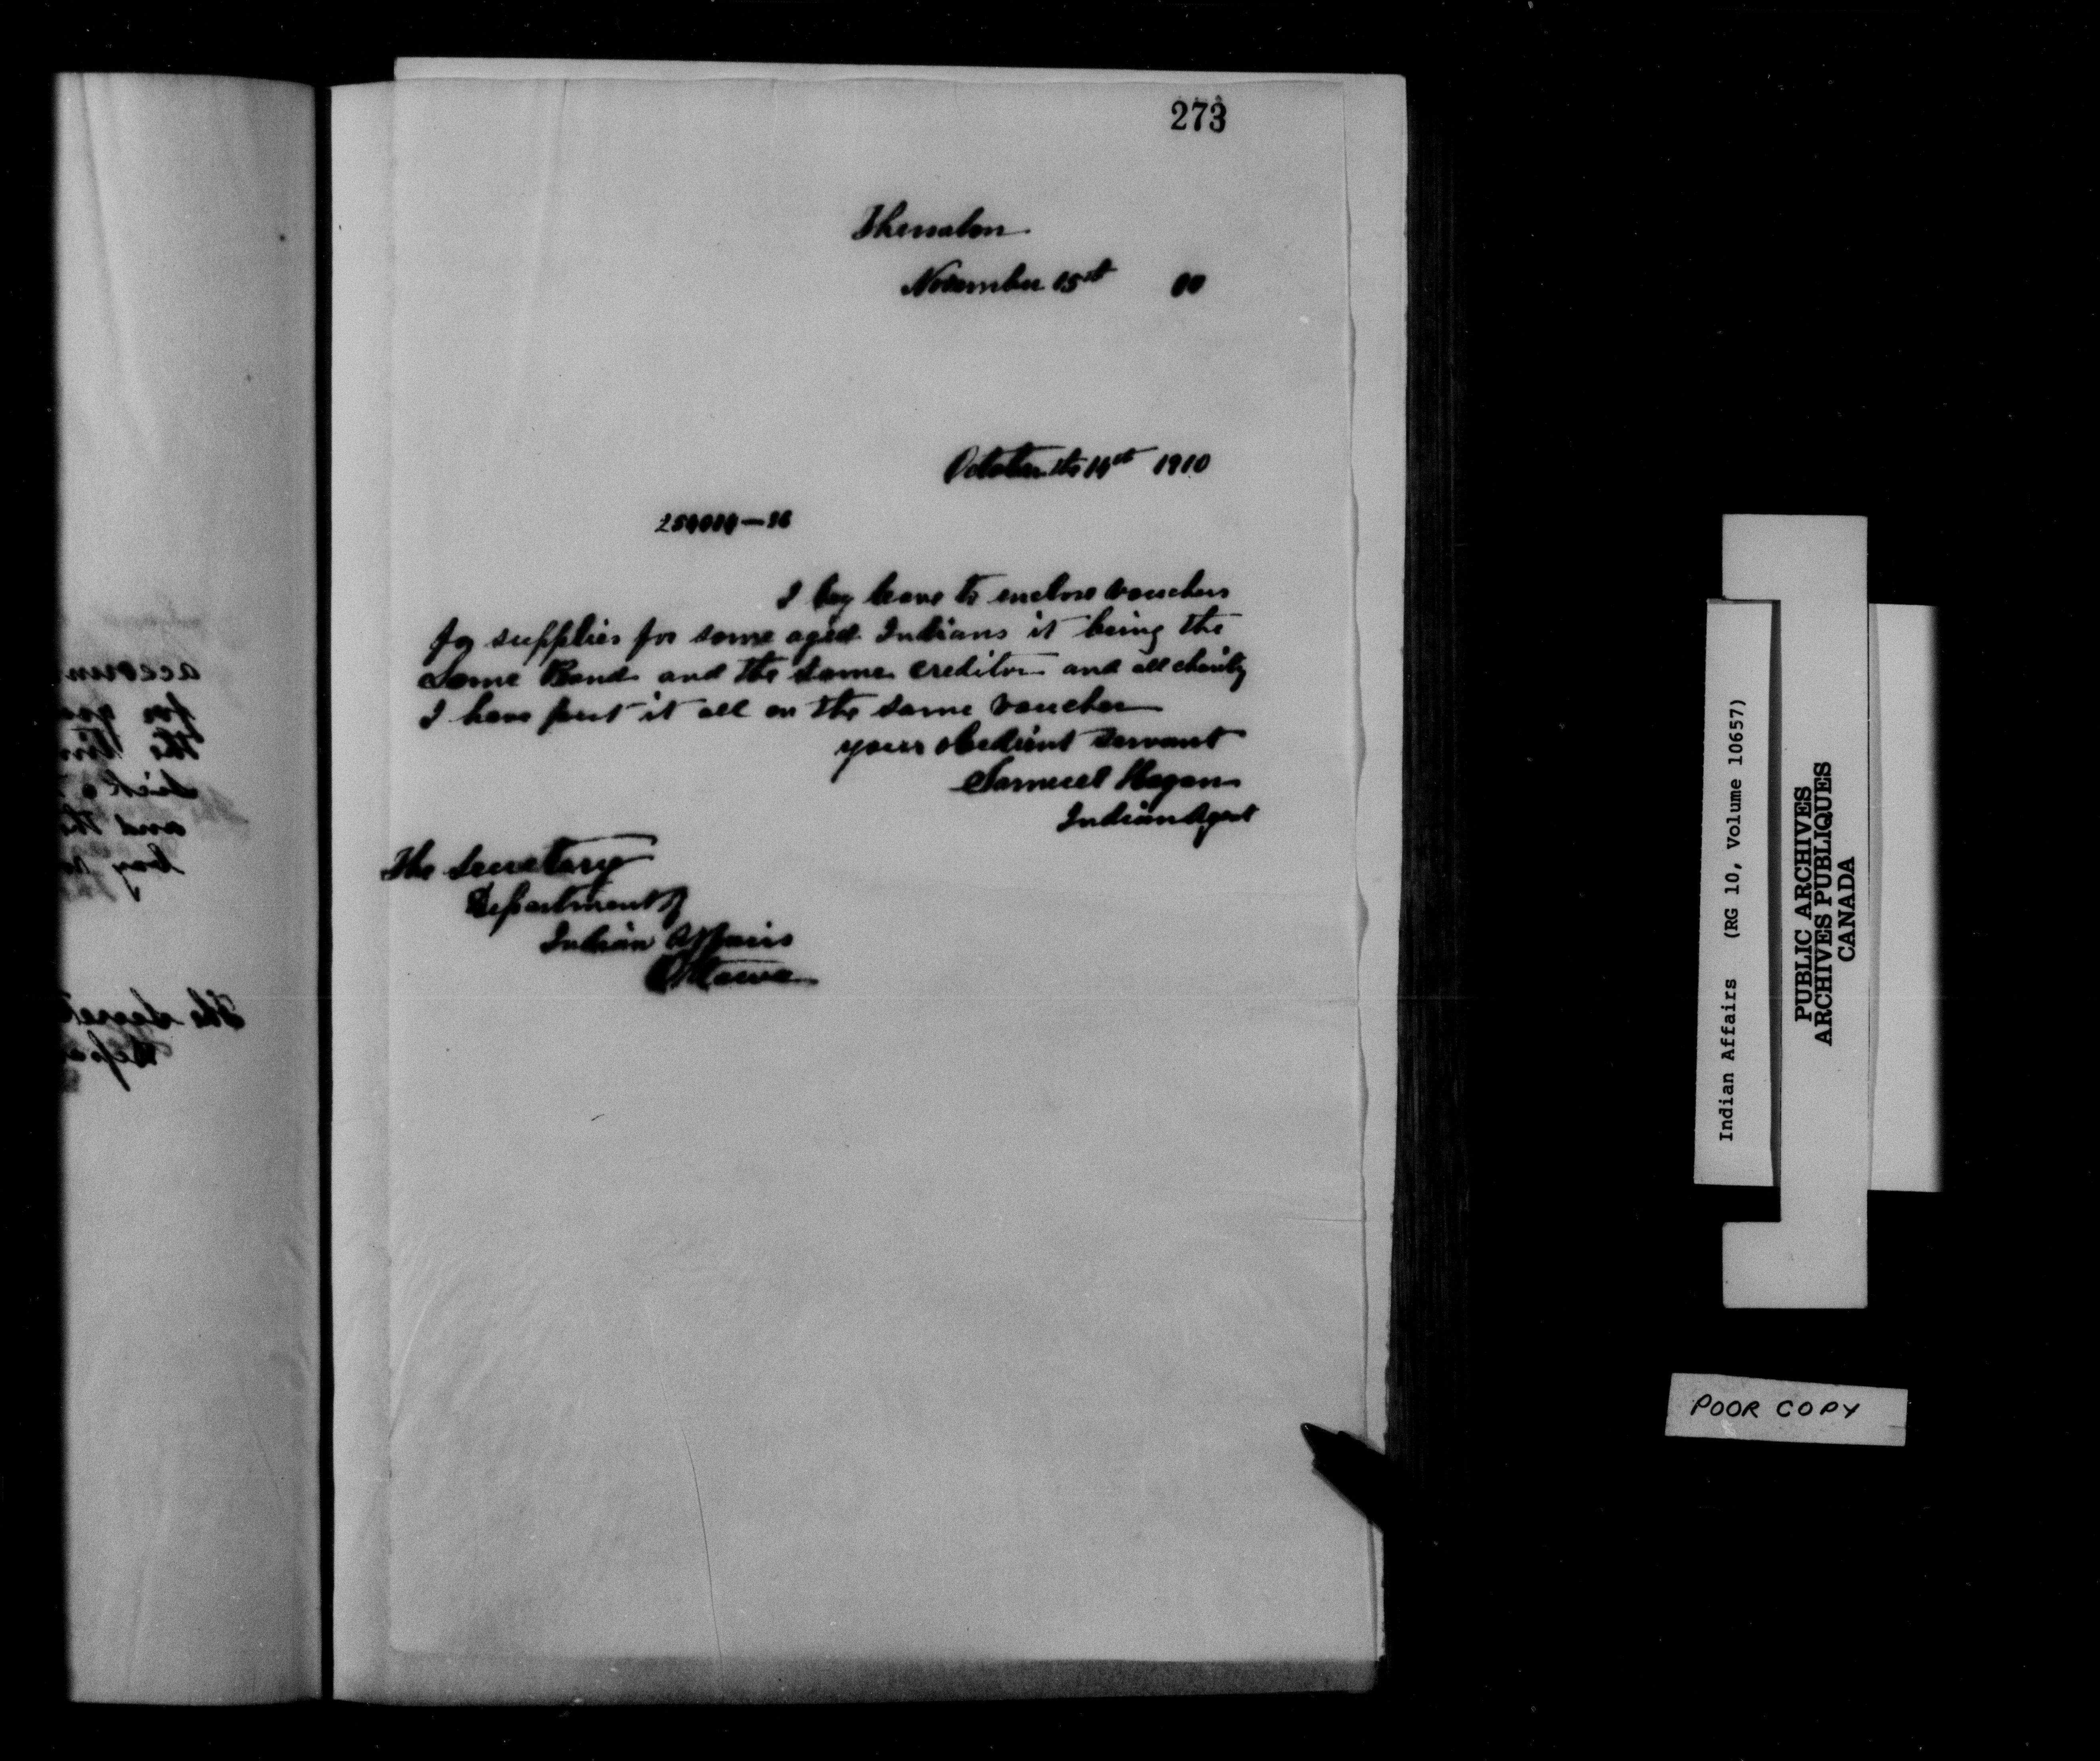 273
Thessalon
November 15st 10
October the 14st 1910
I beg leave to enclose vouchers
for supplies for some aged Indians it being the
Same Band and the same creditor and all charity
I have put it all on the same voucher
your obedient servant
Samuel Hagan
Indian Agent
The Secretary
Department of
Indian Affairs
Ottawa
accoun
for
the
sick a
and the
beg
The Secret
Depa
Indian Affairs (RG 10, Volume 10657)
PUBLIC ARCHIVES
ARCHIVES PUBLIQUES
CANADA
POOR COPY